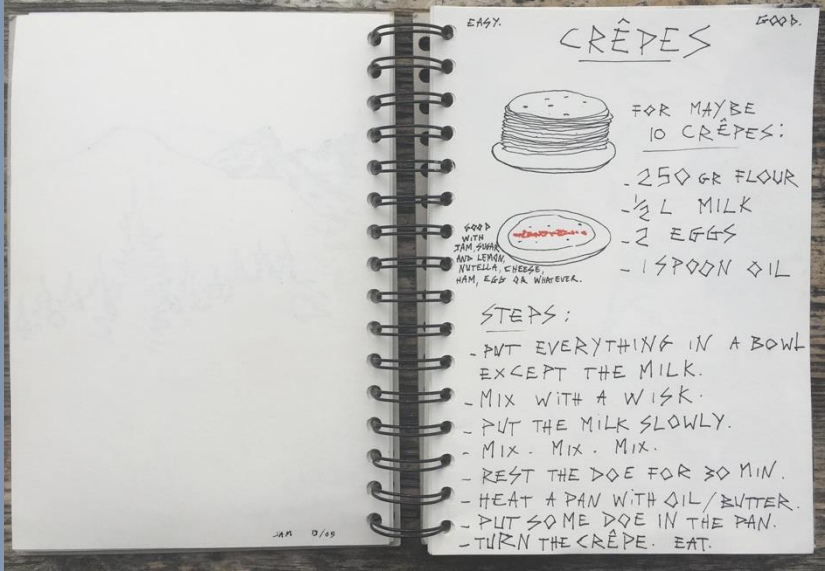 JAM 9/05
EASY.
GOOD.
CRÊPES
FOR MAYBE
10 CRÊPES:
- 250 GR FLOUR
- ½ L MILK
- 2 EGGS
- 1 SPOON OIL
GOOD
WITH
JAM, SUGAR
AND LEMON,
NUTELLA, CHEESE,
HAM, EGG OR WHATEVER.
STEPS:
- PUT EVERYTHING IN A BOWL
EXCEPT THE MILK.
- MIX WITH A WISK.
- PUT THE MILK SLOWLY.
- MIX. MIX. MIX.
- REST THE DOE FOR 30 MIN.
- HEAT A PAN WITH OIL/BUTTER.
- PUT SOME DOE IN THE PAN.
- TURN THE CRÊPE. EAT.